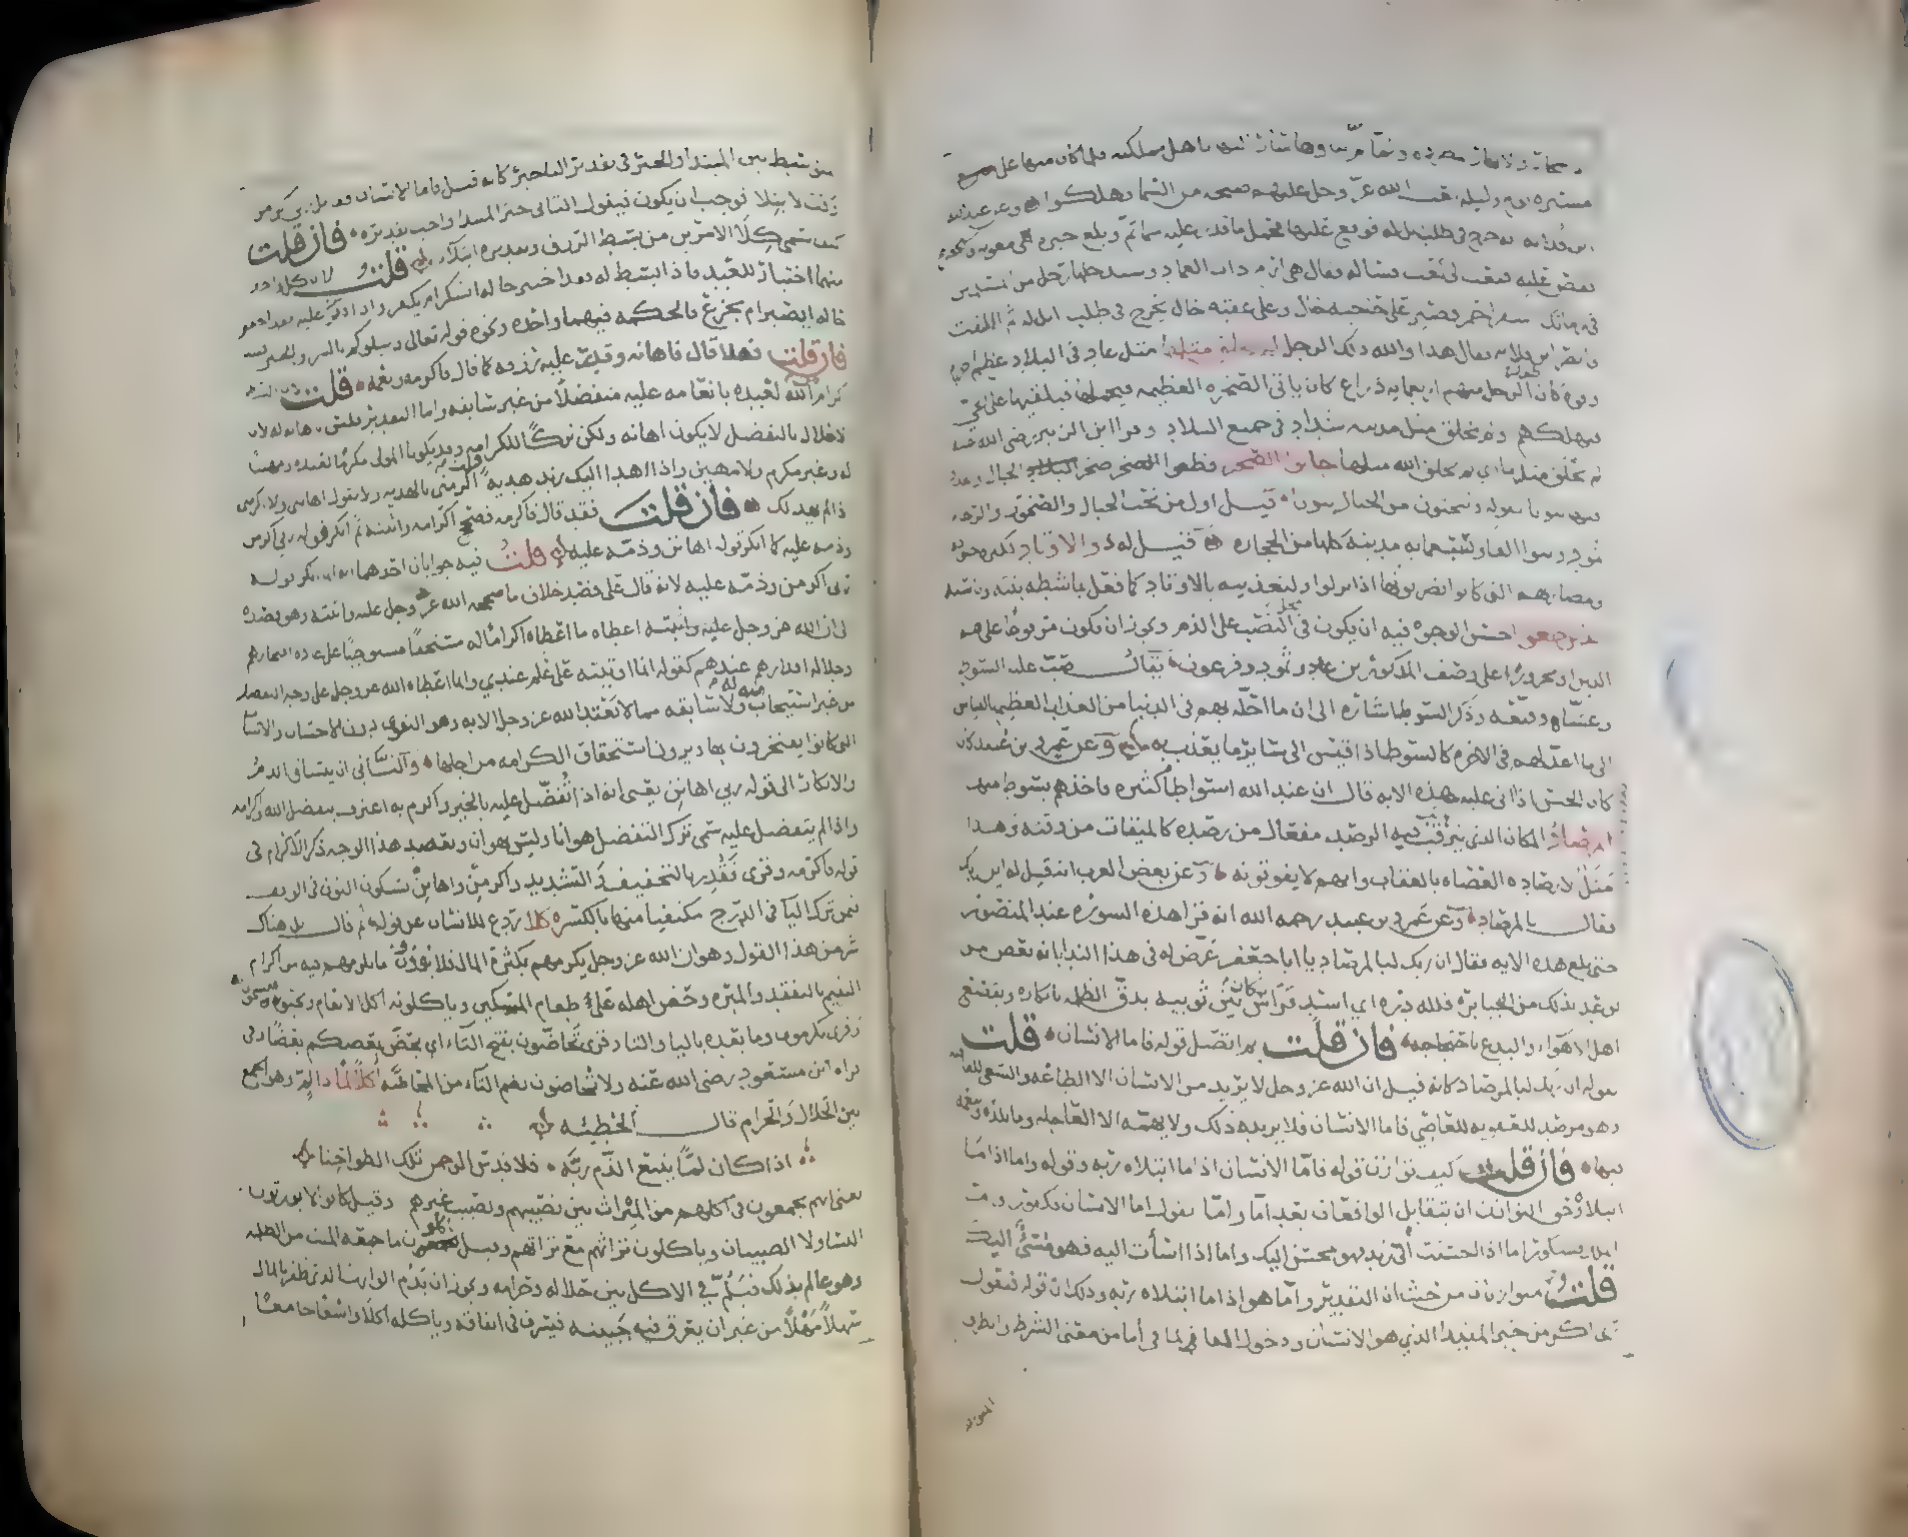 مسيرة يوم وليلة بعث الله عز وجل عليهم صيحة من السما فهلكوا وعن عبد الله
ابن قلابه انه خرج في طلب ابل له فوقع عليها فحمل ما قدر عليه مما ثم وبلغ خبره معويه
فقص عليه فبعث الى كعب فساله فقال هي ارم ذات العماد وسيدخلها رجل من المسلمين
في زمانك احمر قصير على حاجبه خال وعلى عقبه خال يخرج في طلب ابل له ثم التفت
فابصر ابن قلابه فقال هذا والله ذلك الرجل لم يخلق مثلها مثل عاد في البلاد عظم
وقوة كان طول الرجل منهم اربعمايه ذراع كان ياتي الصخره العظيمه فيحملها فيلقيها على الحي
فيهلكهم ولم يخلق مثل مدينه شداد في جميع البلاد وقرا ابن الزبير رضي الله عنه
لم يخلق مثلها اي لم يخلق الله مثلها جابوا الصخر قطعوا صخر الجبال
فيها بيوتا كقوله وتنحتون من الجبال بيوتا قيل اول من نحت الجبال والصخور والرخام
ثمود وبنوا الفا وسبعمايه مدينة كلها من الحجاره قيل له ذو الاوتاد لكثره جنوده
ومضاربهم التي كانوا يضربونها اذا نزلوا ولتعذيبه بالاوتاد كما فعل بماشطه بنته
الذين طغوا احسن الوجوه فيه ان يكون في محل النصب على الذم ويجوز ان يكون مرفوعا على هم
الذين او مجرورا على وصف المذكورين عاد وثمود وفرعون يقال صب عليه السوط
وغشاه وقنعه وذكر السوط اشارة الى ان ما احله بهم في الدنيا من العذاب العظيم بالقياس
الى ما اعد لهم في الاخرة كالسوط اذا قيس الى ساير ما يعذب به وعن عمرو بن عبيد كان
الحسن اذا اتى على هذه الايه قال ان عند الله اسواطا كثيره فاخذهم بسوط منها
المرصاد المكان الذي يترقب فيه الرصد مفعال من رصده كالميقات من وقته وهذا
مثل لارصاده العصاه بالعقاب وانهم لا يفوتونه وعن بعض العرب انه قيل له اين ربك
فقال بالمرصاد وعن عمرو بن عبيد رحمه الله انه قرا هذه السوره عند المنصور
حتى بلغ هذه الايه فقال ان ربك لبالمرصاد يا ابا جعفر عرض له في هذا الندا بانه بعض من
توعد بذلك من الجبابره فلله دره اي اسد فراس كان بين ثوبيه يدق الظلمه بانكاره ويقصع
اهل الاهواء والبدع باحتجاجه فان قلت بم اتصل قوله فاما الانسان قلت
بقوله ان ربك لبالمرصاد كانه قيل ان الله عز وجل لا يريد من الانسان الا الطاعه والسعي للعاقبه
وهو مرصد للعقوبه للعاصي فاما الانسان فلا يريد ذلك ولا يهمه الا العاجله وما يلذه وينعمه
فيها فان قلت كيف توازن قوله فاما الانسان اذا ما ابتلاه ربه وقوله واما اذا ما
ابتلاه وحق التوازن ان يتقابل الواقعان بعد اما واما تقول اما الانسان فكفور واما
الملك فشكور اما اذا احسنت الى زيد فهو محسن اليك واما اذا اسأت اليه فهو مسئ اليك
قلت هما متوازنان من حيث ان التقدير واما هو اذا ما ابتلاه ربه وذلك ان قوله فيقول
ربي اكرمن خبر المبتدا الذي هو الانسان ودخول الفا لما في اما من معنى الشرط والظرف
المتوسط
المتوسط بين المبتدا والخبر في تقدير التاخير كانه قيل فاما الانسان فقايل ربي اكرمن
وقت الابتلا فوجب ان يكون فيقول الثاني خبر المبتدا واجب تقديره فان قلت
كيف سمى كلا الامرين من بسط الرزق وتقديره ابتلاء قلت لان كل واحد
منهما اختبار للعبد فاذا ابسط له فقد اختبر حاله ايشكر ام يكفر واذا قدر عليه فقد اختبر
حاله ايصبر ام يجزع فالحكمه فيهما واحده ونحوه قوله تعالى ونبلوكم بالشر والخير فتنه
فان قلت فهلا قال فاهانه وقدر عليه رزقه كما قال فاكرمه ونعمه قلت
اكرام الله لعبده بانعامه عليه متفضلا من غير سابقه واما التقدير فليس باهانه له لان
الاخلال بالتفضل لا يكون اهانه ولكن تركا للكرامه وقد يكون المولى مكرما لعبده ومهينا
له وغير مكرم ولا مهين واذا اهدا اليك زيد هديه قلت اكرمني بالهديه ولا تقول اهانني ولا اكرمني
اذا لم يهد لك فان قلت فقد قال فاكرمه فصحح اكرامه واثبته ثم انكر قوله ربي اكرمن
وذمه عليه كما انكر قوله اهانن وذمه عليه قلت فيه جوابان احدهما انه انما انكر قوله
ربي اكرمن وذمه عليه لانه قال على قصد خلاف ما صححه الله عز وجل عليه واثبته وهو قصده
الى ان الله عز وجل عليه واثبته اعطاه ما اعطاه اكراما له مستحقا مستوجبا على عاده افتخارهم
وجلاله اقدارهم عندهم كقوله انما اوتيته على علم عندي وانما اعطاه الله عز وجل على وجه التفضل
من غير استيجاب منه له ولا سابقه مما لا يعتد الله عز وجل الا به وهو التقوى دون الاحساب والانساب
التي كانوا يفتخرون بها ويرون استحقاق الكرامه من اجلها والثاني ان ينساق الذم
والانكار الى قوله ربي اهانن يعني انه اذا تفضل عليه بالخير واكرم به اعترف بتفضل الله واكرامه
واذا لم يتفضل عليه سمى ترك التفضل هوانا وليس بهوان ويعضد هذا الوجه ذكر الاكرام في
قوله فاكرمه وقرى فقدر بالتخفيف والتشديد واكرمن واهانن بسكون النون في الوقف
فيمن ترك اليا في الدرج مكتفيا منها بالكسره كلا ردع للانسان عن قوله ثم قال بل هناك
شر من هذا القول وهو ان الله عز وجل يكرمهم بكثرة المال فلا يؤدون ما يلزمهم فيه من اكرام
اليتيم بالتفقد والمبره وحض اهله على طعام المسكين وياكلونه اكل الانعام ويحبونه
وقرى يكرمون وما بعده باليا والتا وقرى تحاضون بفتح التاء اي يحض بعضكم بعضا وفي
قراه ابن مسعود رضي الله عنه ولا تحاضون بضم التاء من المحاضه اكلا لما ذا لم وهو الجمع
بين الحلال والحرام قال الحطيئه
اذا كان لما يتبع الذم ربه فلا قدس الرحمن تلك الطواحنا
يعني انهم يجمعون في اكلهم من الميراث بين نصيبهم ونصيب غيرهم وقيل كانوا لا يورثون
النسا ولا الصبيان وياكلون تراثهم مع تراثهم وقيل ياكلون ما جمعه الميت من الظلمه
وهو عالم بذلك فيلم في الاكل بين حلاله وحرامه ويجوز ان يذم الوارث الذي ظفر بالمال
سهلا مهلا من غير ان يعرق فيه جبينه فيسرف في انفاقه وياكله اكلا واسعا جامعا